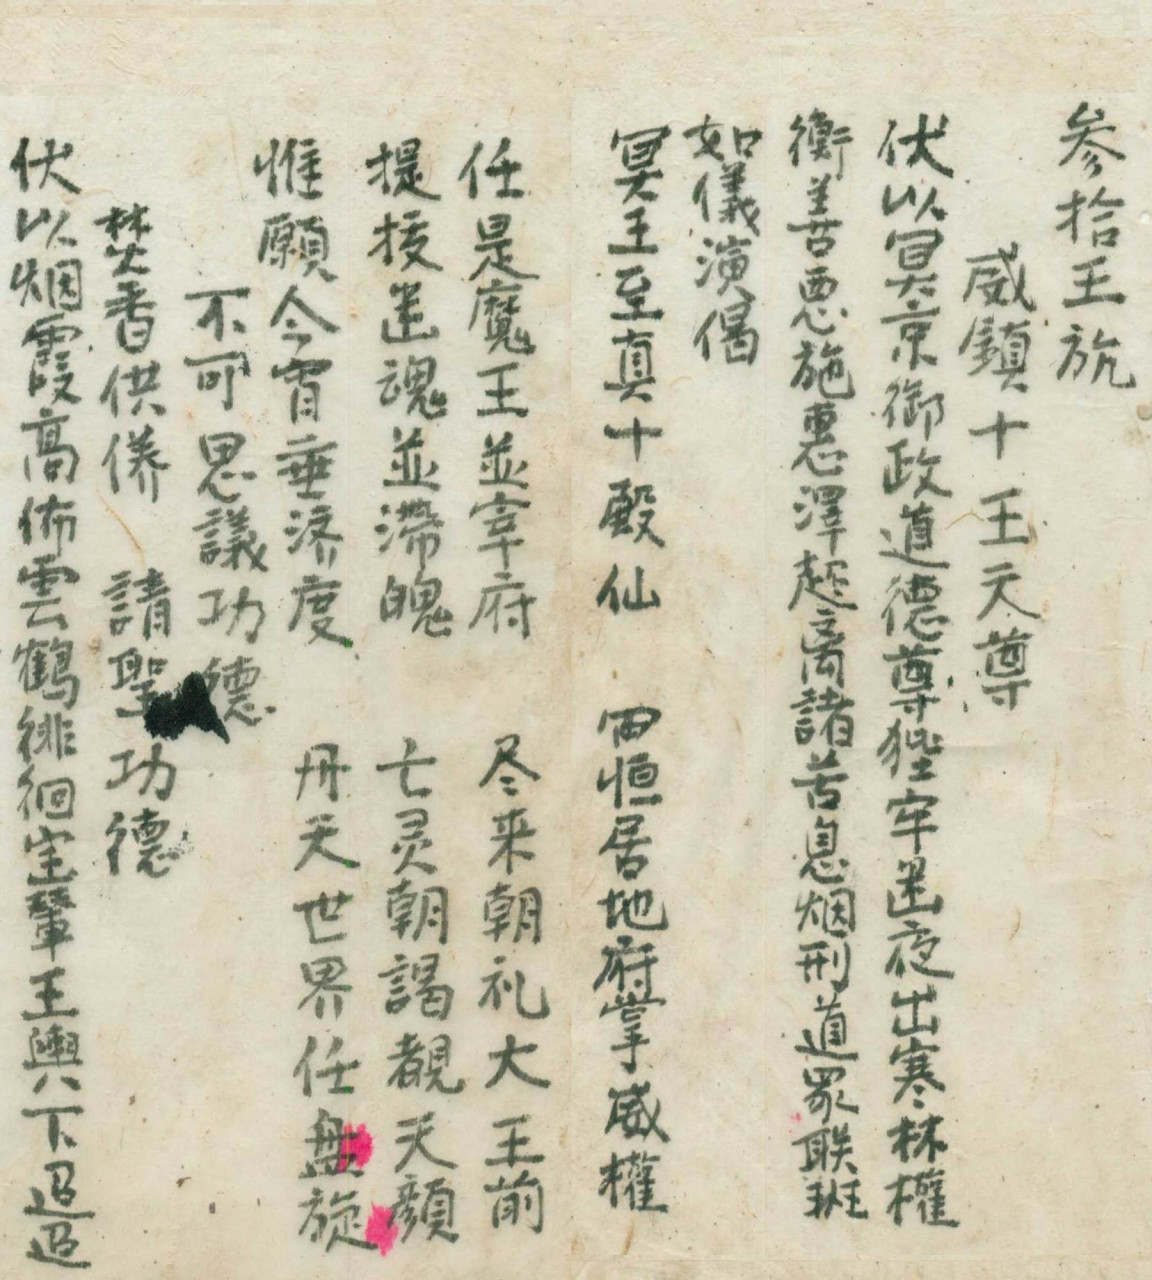 参拾王旂
威鎮十王天尊
伏以冥京御政道德尊狴牢幽夜出寒林權
衡善恶施惠澤起离諸苦息烟刑道眾联班
如儀演偈
冥王至真十殿仙 恒居地府掌威權
任是魔王並宰府 尽来朝礼大王前
提拔幽魂並滯魄 亡灵朝謁覩天顏
惟願今宵垂济度 丹天世界任盘旋
不可思議功德
焚香供養 請聖功德
伏以烟霞高佈雲鶴徘徊宝輦王輿下迢迢